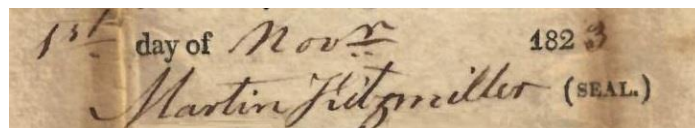 1st day of Novr 1823
Martin Kitzmiller (SEAL.)